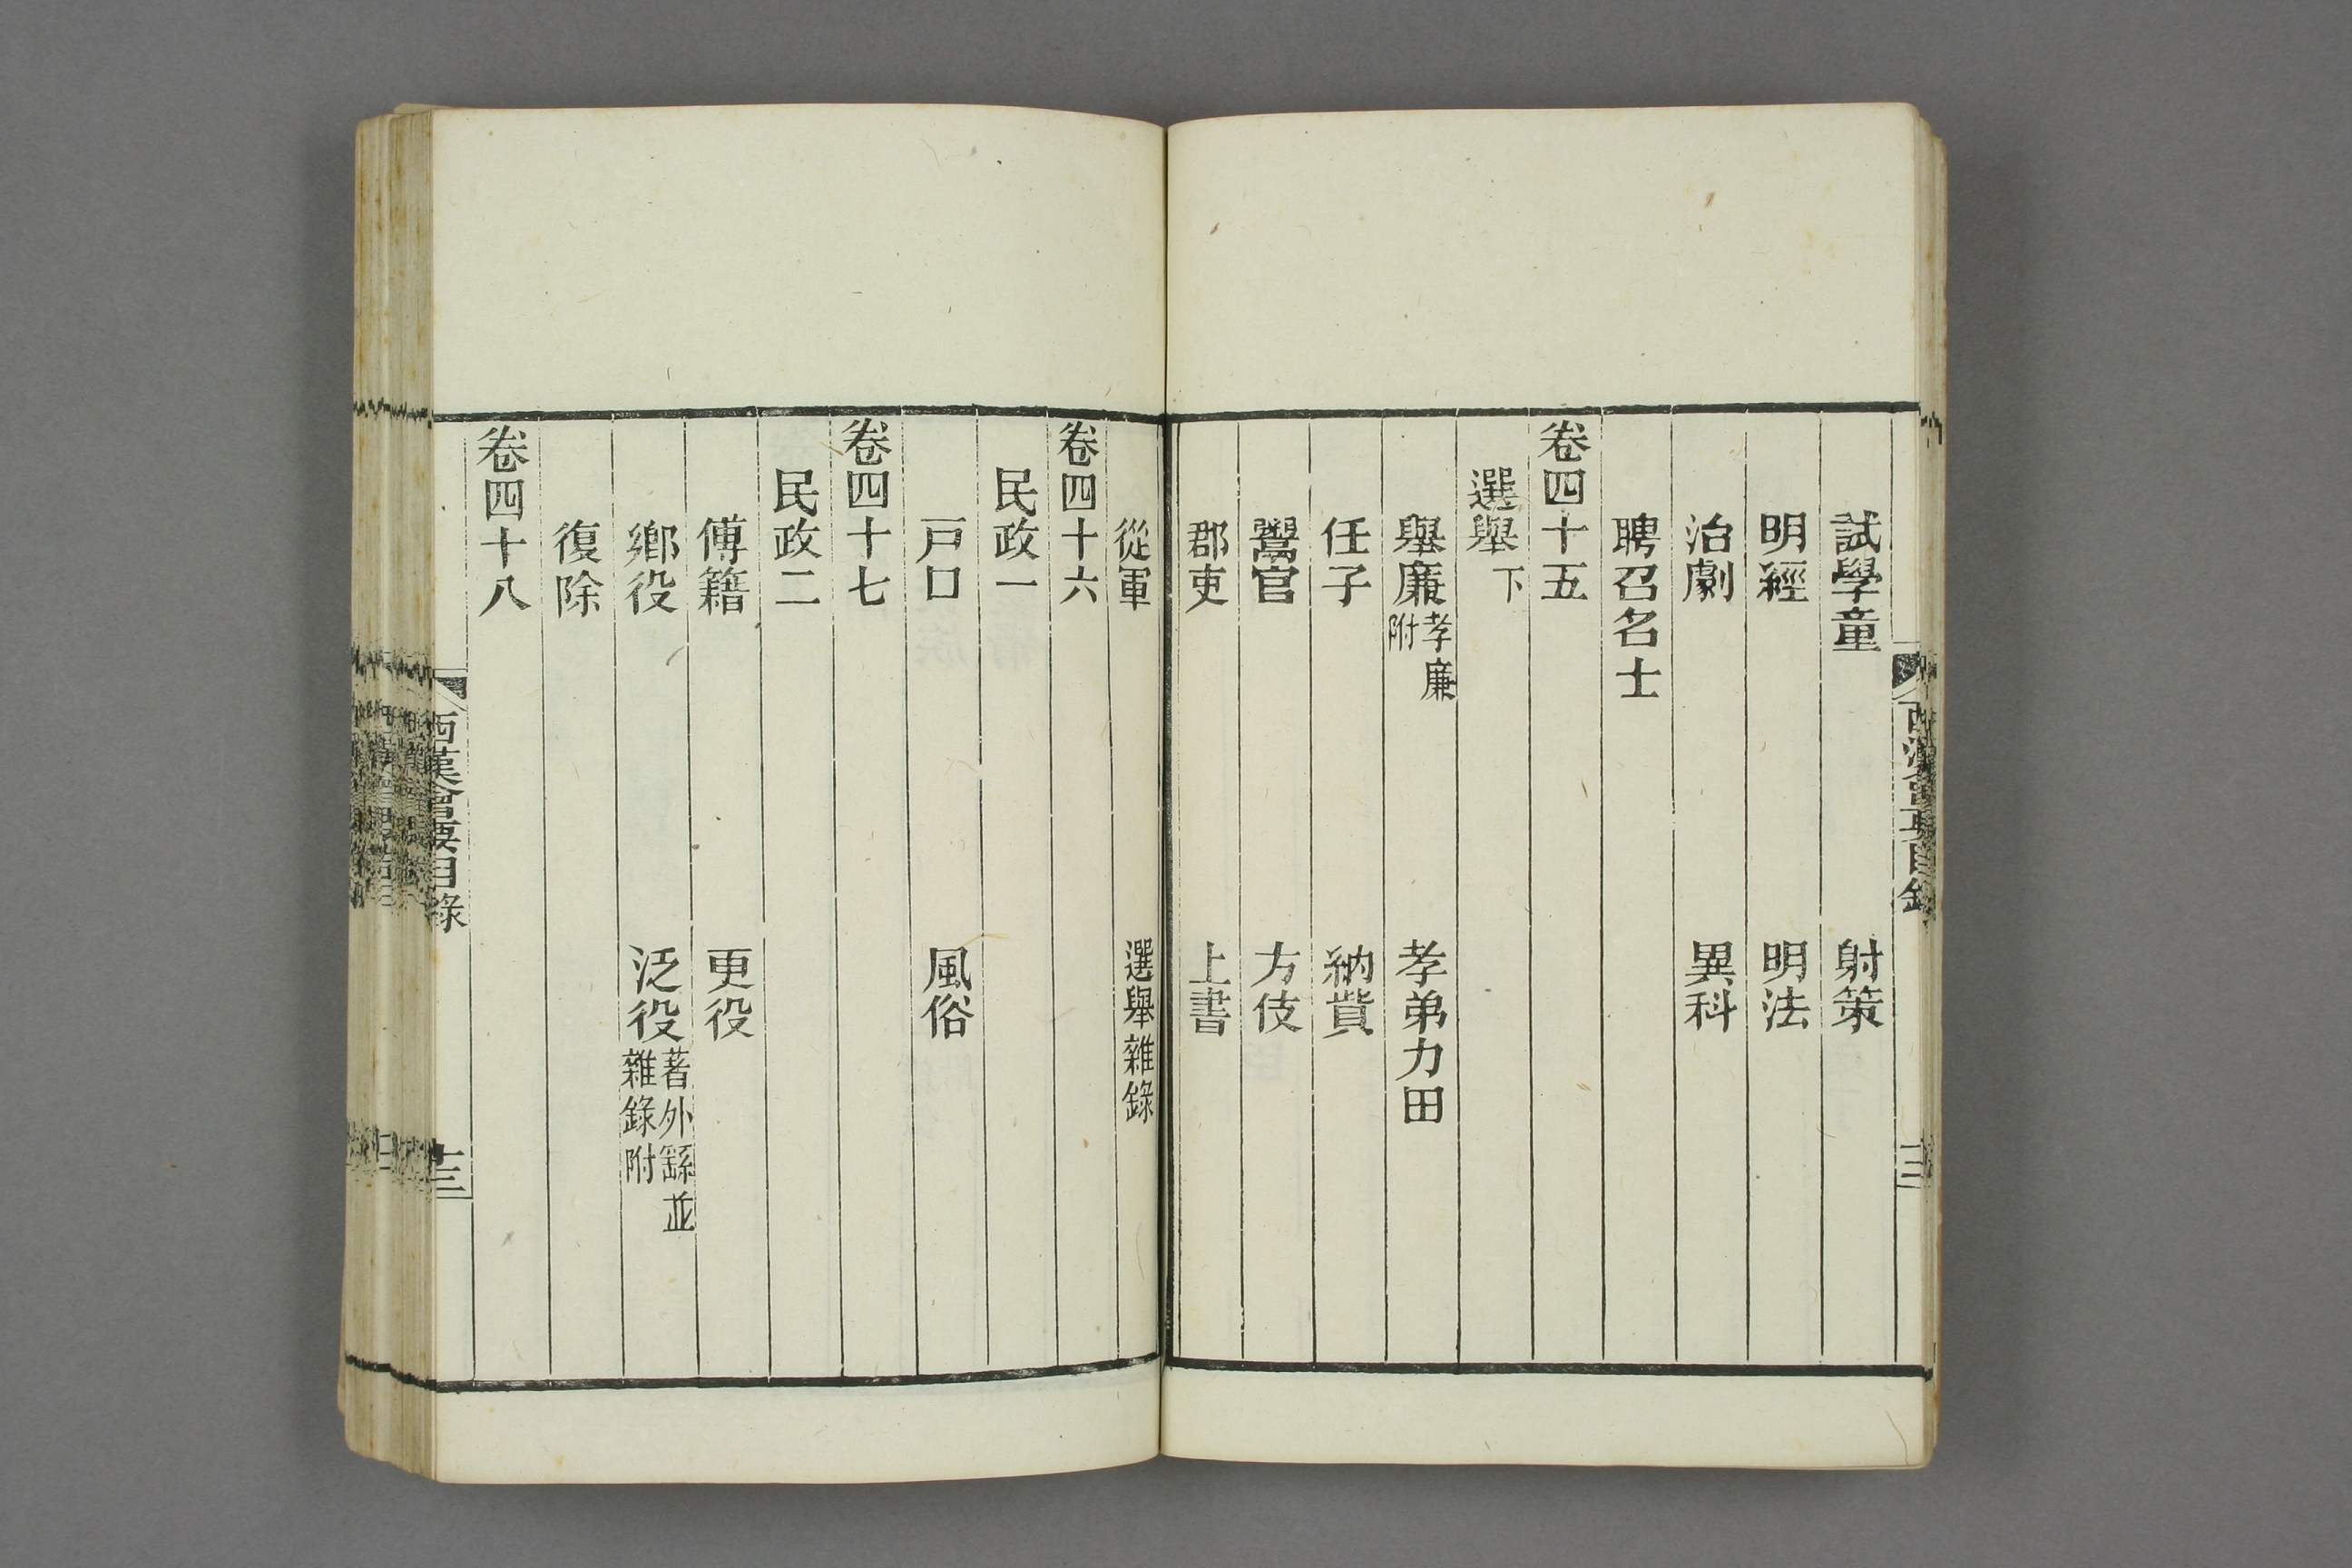 試學童 射策
明經 明法
治劇 異科
聘召名士
卷四十五
選舉下
舉廉孝廉附 孝弟力田
任子 納貲
鬻官 方伎
郡吏 上書
從軍 選舉雜錄
卷四十六
民政一
戸口 風俗
卷四十七
民政二
傅籍 更役
鄉役 泛役著外繇並雜錄附
復除
卷四十八
西漢會要目錄
十三